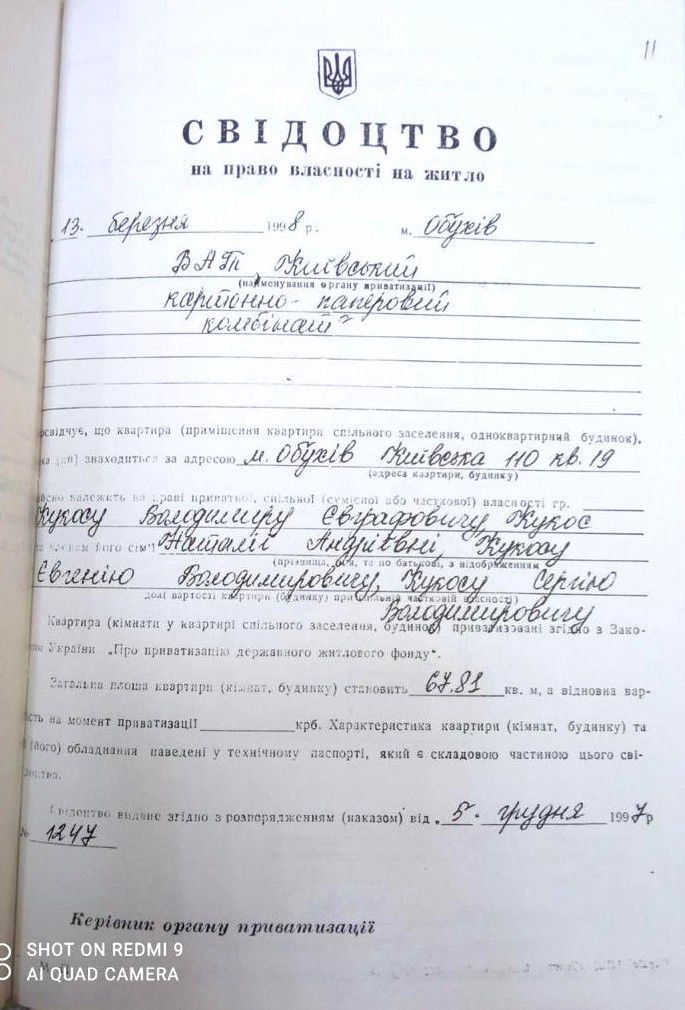 11
СВІДОЦТВО
на право власності на житло
13. березня 1998 р. м. Обухів
ВАТ „Київський
(найменування органу приватизації)
картонно-паперовий
комбінат"
свідчує, що квартира (приміщення квартири спільного заселення, одноквартирний будинок),
знаходиться за адресою м. Обухів Київська 110 кв. 19
(адреса квартири, будинку)
належить на праві приватної, спільної (сумісної або часткової) власності гр.
Кукосу Володимиру Євграфовичу, Кукос
членам його сім'ї Наталії Андріївні, Кукосу
(прізвища, ім'я, та по батькові, з відображенням
Євгенію Володимировичу, Кукосу Сергію
долі вартості квартири (будинку) при спільній частковій власності)
Володимировичу
Квартира (кімнати у квартирі спільного заселення, будинок) приватизовані згідно з Зако-
України „Про приватизацію державного житлового фонду".
Загальна площа квартири (кімнат, будинку) становить 67,81 кв. м, а відновна вар-
ість на момент приватизації крб. Характеристика квартири (кімнат, будинку) та
(його) обладнання наведені у технічному паспорті, який є складовою частиною цього сві-
доцтва.
Свідоцтво видане згідно з розпорядженням (наказом) від „5" грудня 1997 р
№ 1247
Керівник органу приватизації
SHOT ON REDMI 9
AI QUAD CAMERA